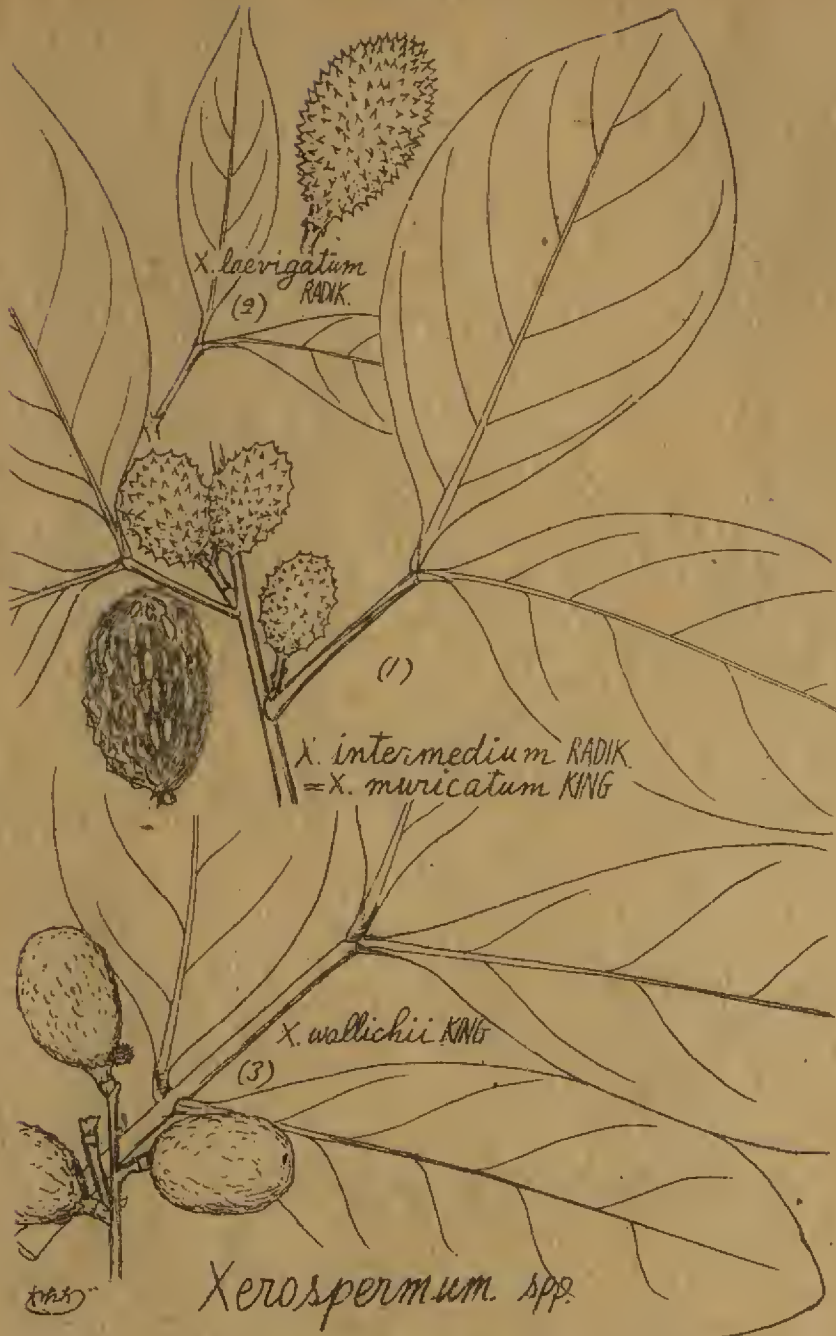 X. laevigatum
RADIK.
(2)
(1)
X. intermedium RADIK.
=X. muricatum KING
X. wallichii KING
(3)
Xerospermum spp.